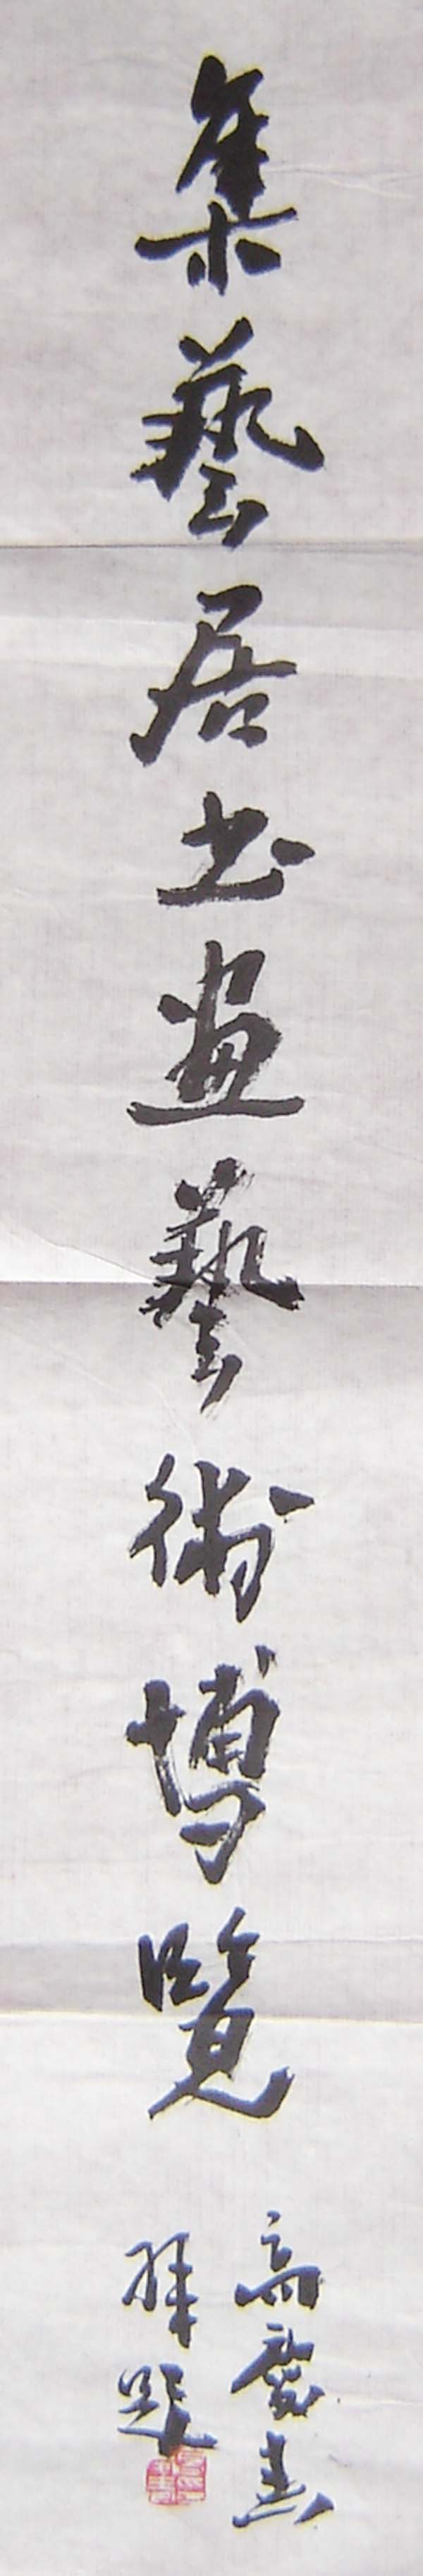 集藝居书画藝術博覽
高慶春
拜題